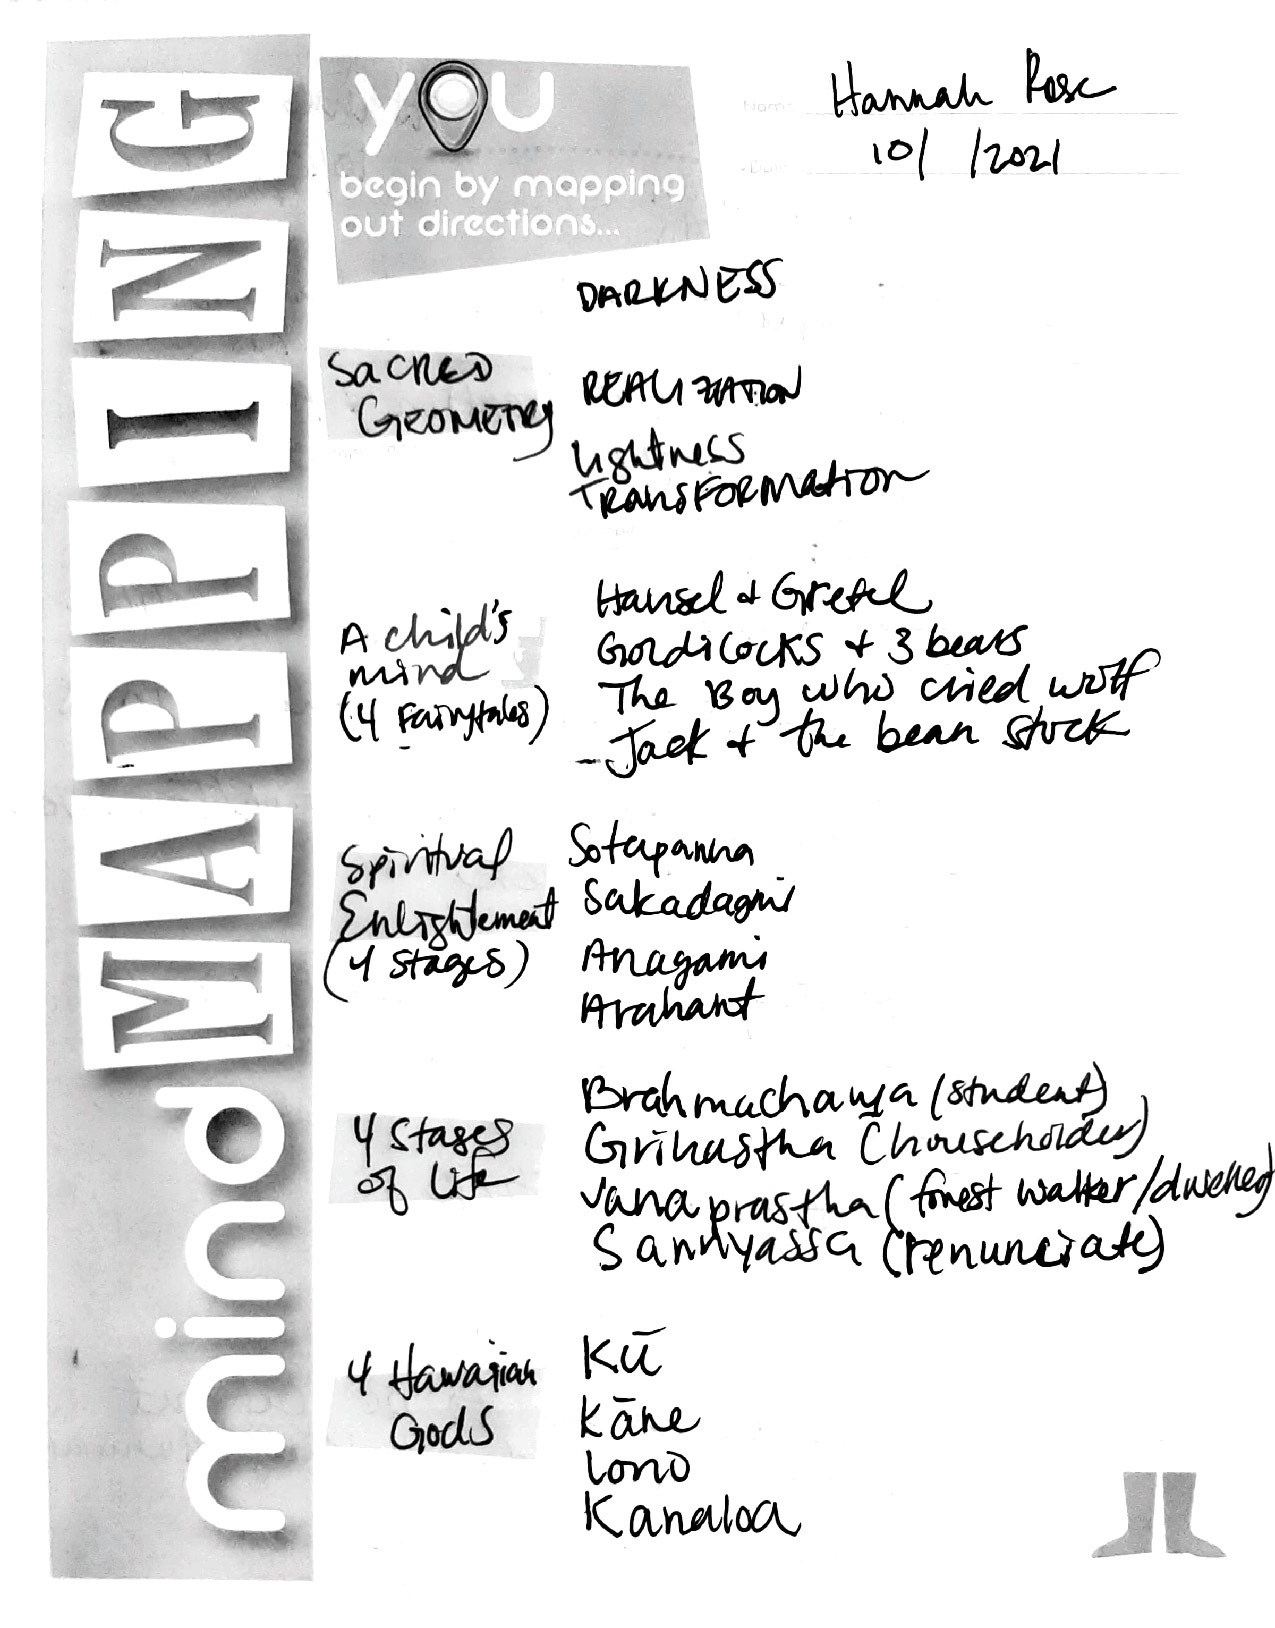 mind MAPPING
yOU
begin by mapping
out directions...
Name
Hannah Rose
10/ /2021
DARKNESS
SACRED
GEOMETRY
REALIZATION
Lightness
TRANSFORMATION
A child's
mind
(4 Fairytales)
Hansel + Gretel
Goldilocks + 3 bears
The Boy who cried wolf
Jack + the bean stock
Spiritual
Enlightement
(4 stages)
Sotapanna
Sakadagmi
Anagami
Arahant
4 Stages
of Life
Brahmacharya (student)
Grihastha (householder)
Vanaprastha (forest walker/dweller)
Sannyassa (renunciate)
4 Hawaiian
Gods
Kū
Kāne
Lono
Kanaloa